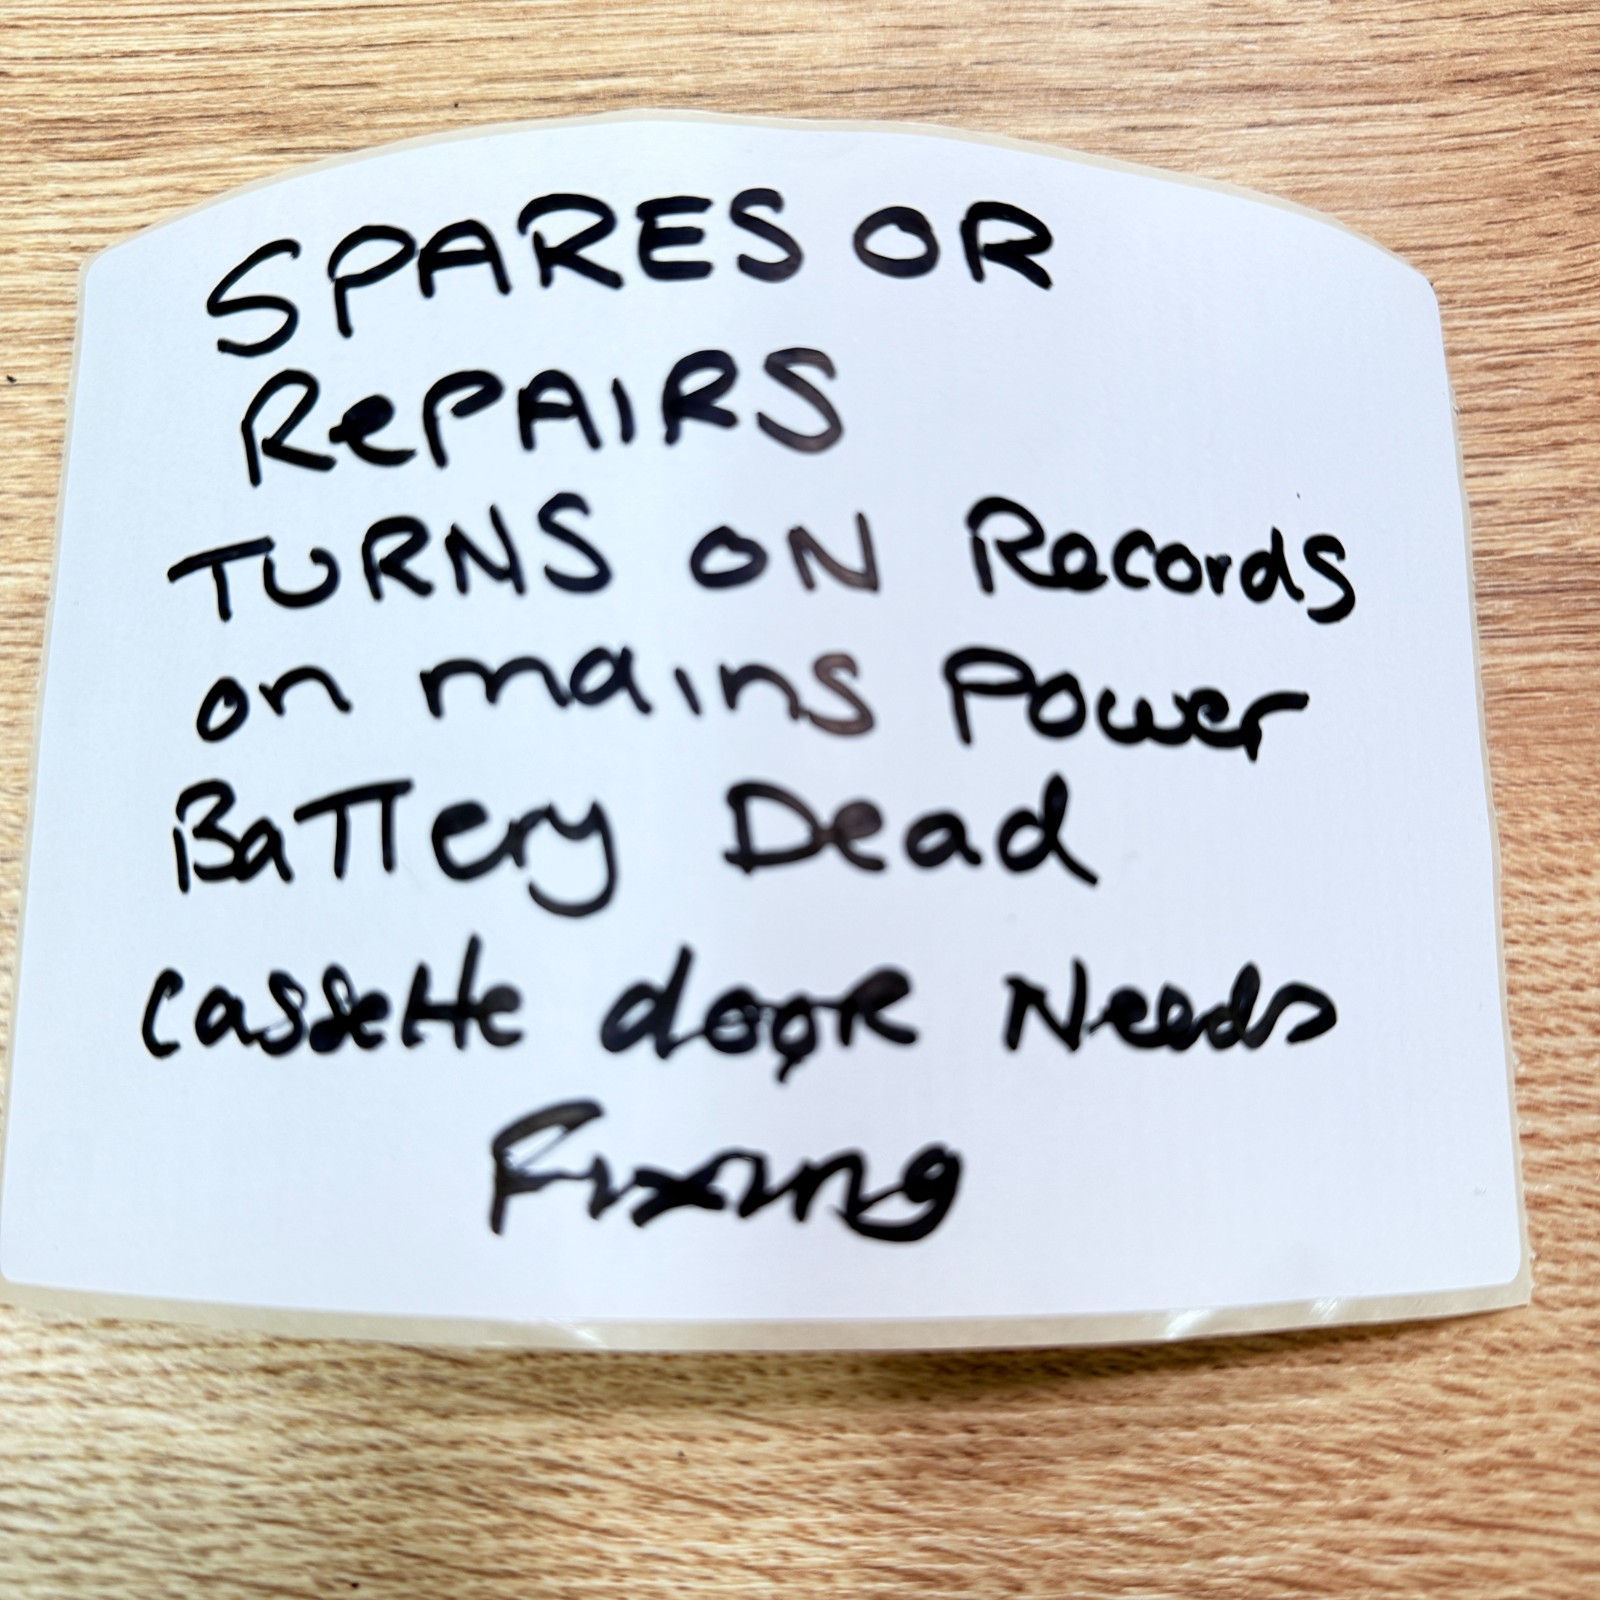 SPARES OR
RePAIRS
TURNS ON Records
on mains Power
BaTTery Dead
Cassette dooR Needs
Fixing